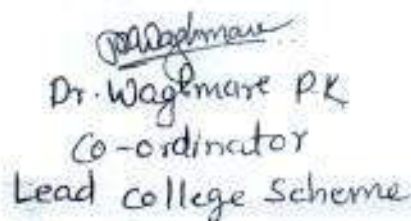 Dr. Waghmare P.K
Co-ordinator
Lead college Scheme